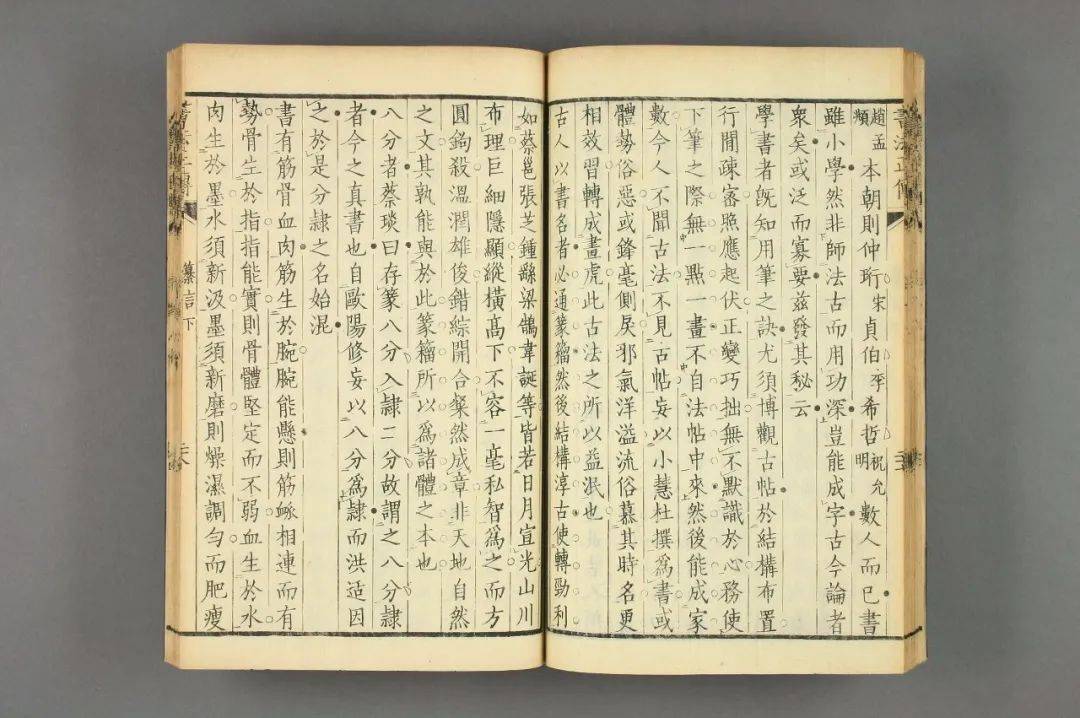 趙孟頫本朝則仲珩宋貞伯李希哲祝允明數人而已書
雖小學然非師法古而用功深豈能成字古今論者
衆矣或泛而寡要茲發其秘云
學書者旣知用筆之訣尤須博觀古帖於結構布置
行間疎密照應起伏正變巧拙無不默識於心務使
下筆之際無一點一畫不自法帖中來然後能成家
數今人不聞古法不見古帖妄以小慧杜撰爲書或
體勢俗惡或鋒毫側戾邪氣洋溢流俗慕其時名更
相效習轉成畫虎此古法之所以益泯也
古人以書名者必通篆籀然後結構淳古使轉勁利
如蔡邕張芝鍾繇梁鵠韋誕等皆若日月宣光山川
布理巨細隱顯縱橫高下不容一毫私智爲之而方
圓鉤殺溫潤雄俊錯綜開合粲然成章非天地自然
之文其孰能與於此篆籀所以爲諸體之本也
八分者蔡琰曰存篆八分入隸二分故謂之八分隸
者今之眞書也自歐陽修妄以八分爲隸而洪适因
之於是分隸之名始混
書有筋骨血肉筋生於腕腕能懸則筋脈相連而有
勢骨生於指指能實則骨體堅定而不弱血生於水
肉生於墨水須新汲墨須新磨則燥濕調勻而肥瘦
纂言下